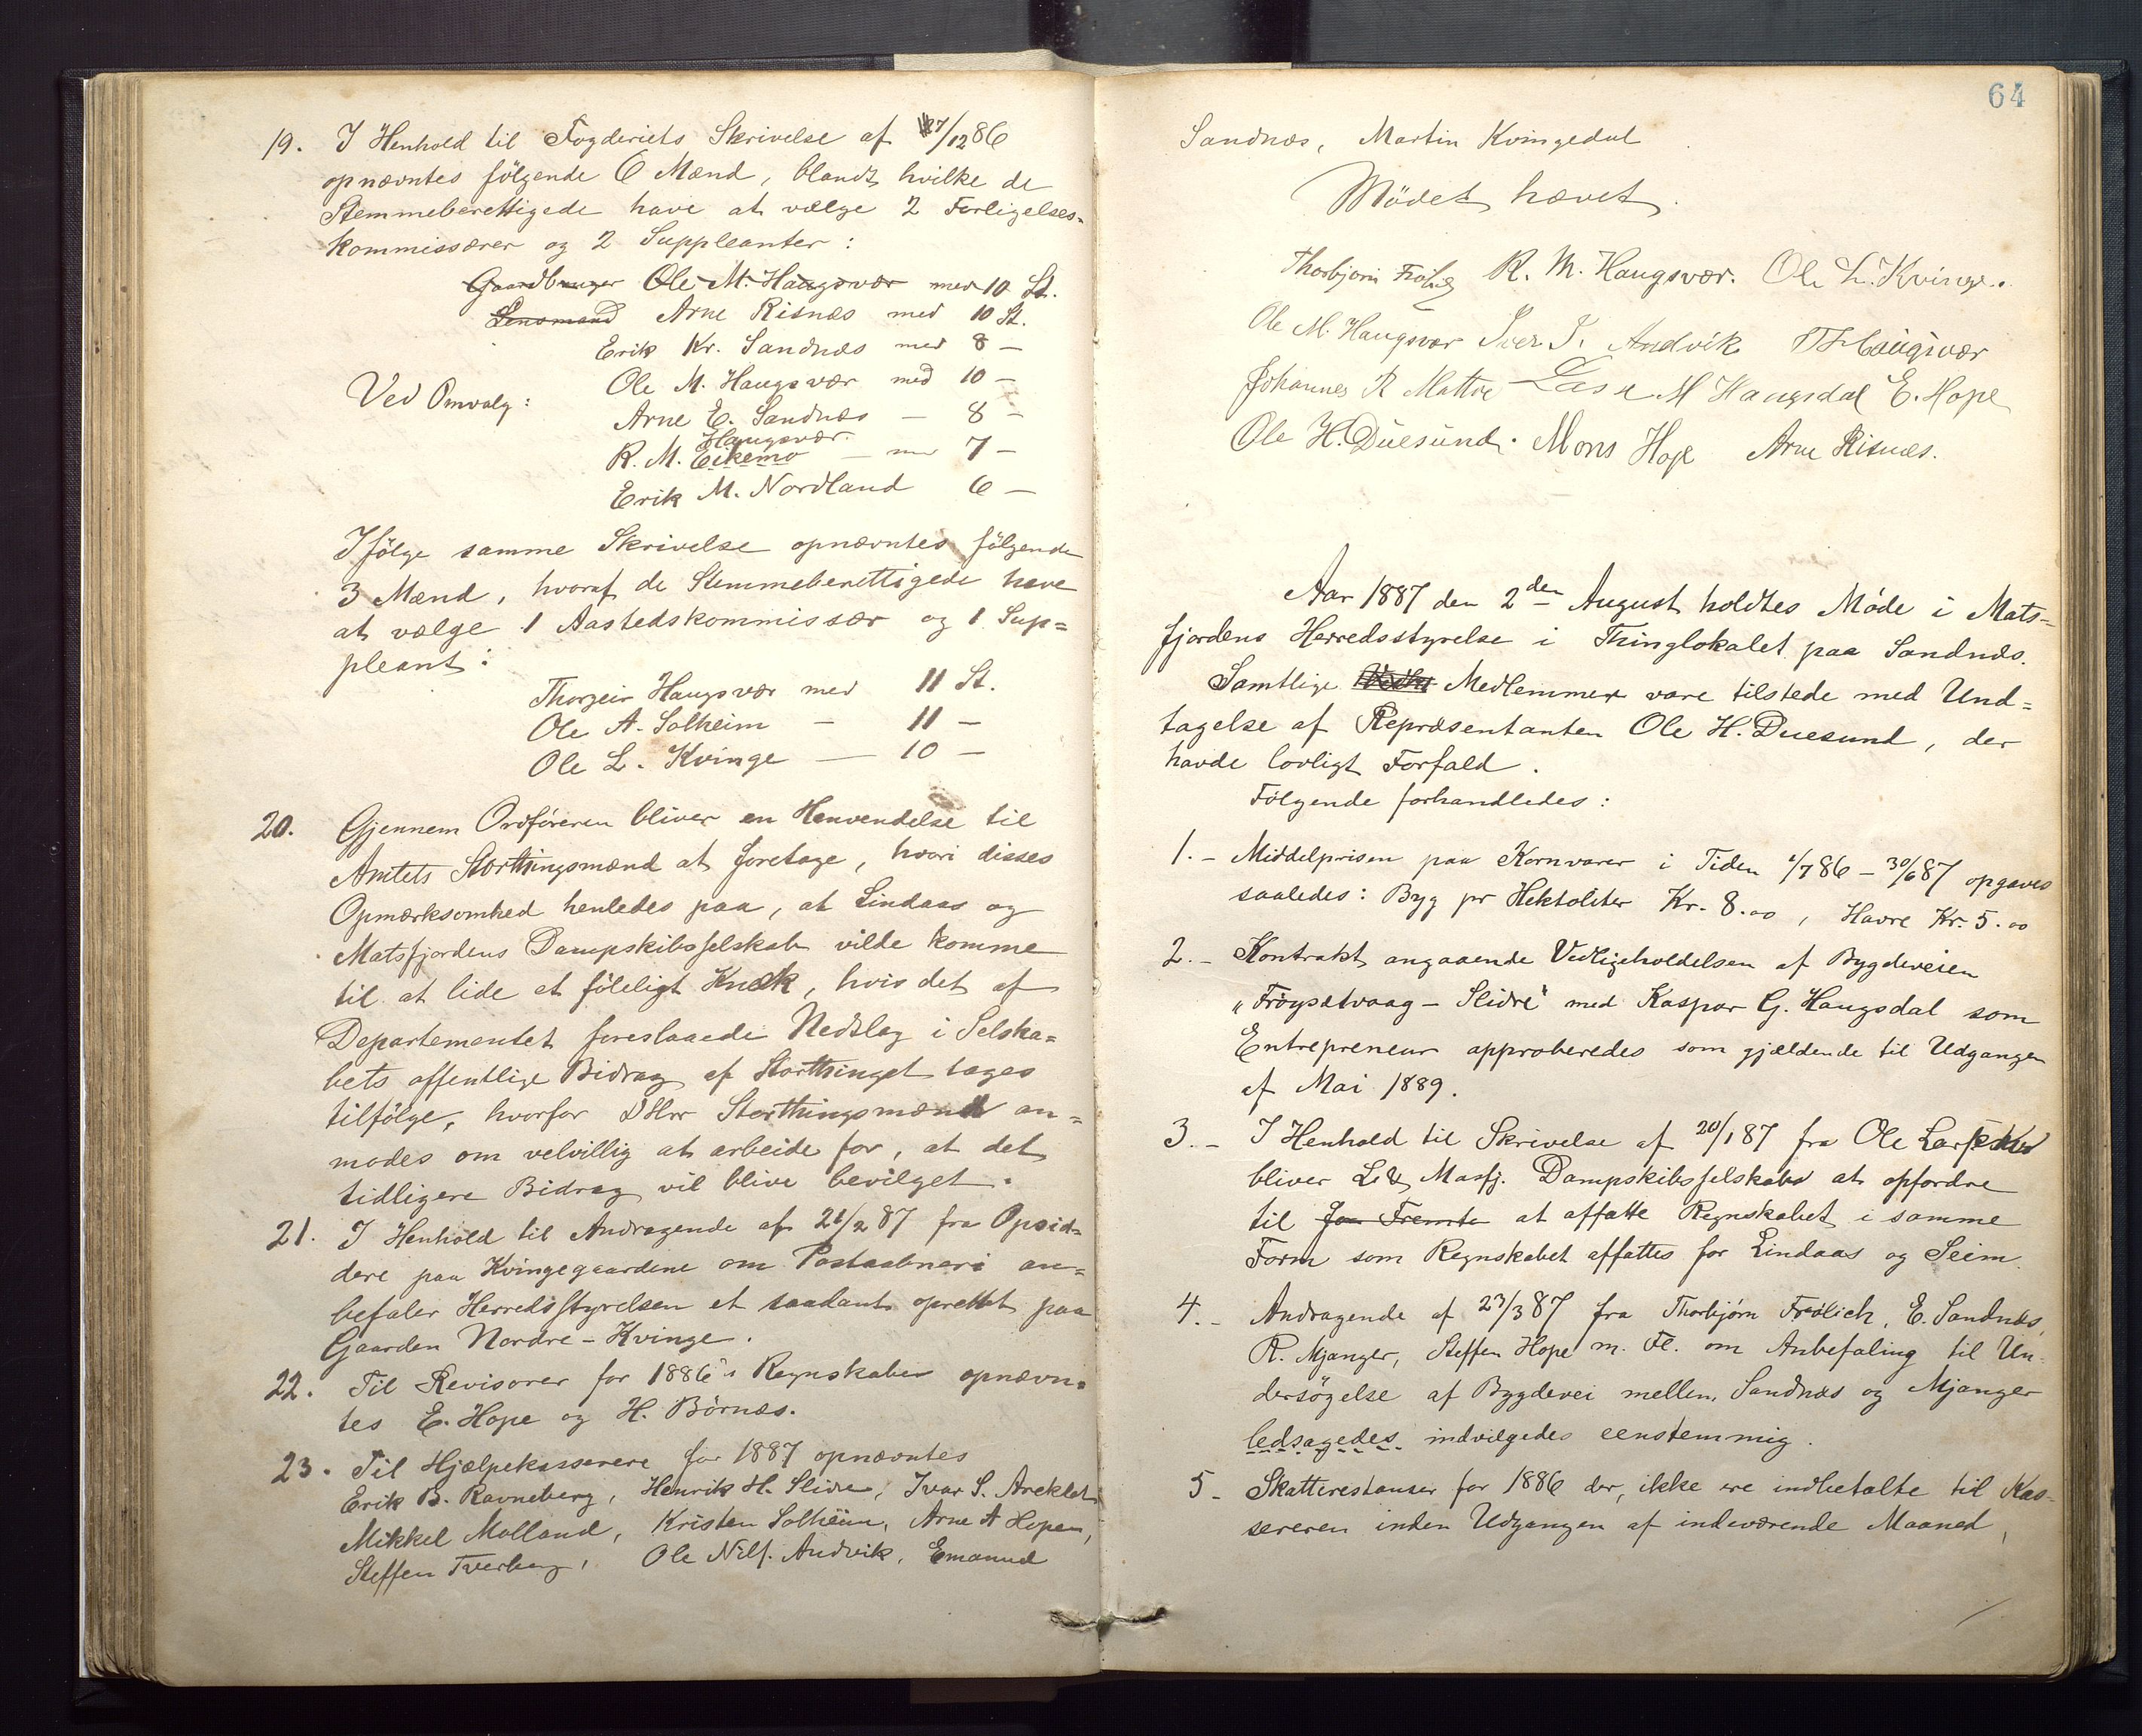 19. I Henhold til Fogderiets Skrivelse af 27/12 86
opnævntes følgende 6 Mænd, blandt hvilke de
Stemmeberettigede have at vælge 2 Forligelses=
kommissærer og 2 Suppleanter:
Gaardbruger Ole M. Haugsvær med 10 St.
Lensmand Arne Risnæs med 10 St.
Erik Kr. Sandnæs med 8 —
Ved Omvalg: Ole M. Haugsvær med 10 —
Arne E. Sandnæs — 8 —
Haugsvær.
R. M. Eikemo — med 7 —
Erik M. Nordland 6 —
Ifølge samme Skrivelse opnævntes følgende
3 Mænd, hvoraf de Stemmeberettigede have
at vælge 1 Aastedskommissær og 1 Sup=
pleant:
Thorgeir Haugsvær med 11 St.
Ole A. Solheim — 11 —
Ole L. Kvinge — 10 —
20. Gjennem Ordføreren bliver en Henvendelse til
Amtets Storthingsmænd at foretage, hvori disses
Opmærksomhed henledes paa, at Lindaas og
Matsfjordens Dampskibsselskab vilde komme
til at lide et føleligt Knæk, hvis det af
Departementet foreslaaede Nedslag i Selska=
bets offentlige Bidrag af Storthinget tages
tilfølge, hvorfor DHrr Storthingsmænd an=
modes om velvillig at arbeide for, at det
tidligere Bidrag vil blive bevilget.
21. I Henhold til Andragende af 21/2 87 fra Opsid=
dere paa Kvingegaardene om Postaabneri an=
befaler Herredsstyrelsen et saadant oprettet paa
Gaarden Nordre-Kvinge.
22. Til Revisorer for 1886's Regnskaber opnævn=
tes E. Hope og H. Børnæs.
23. Til Hjælpekasserere for 1887 opnævntes
Erik B. Ravneberg, Henrik H. Slidre, Ivar S. Areklet
Mikkel Molland, Kristen Solheim, Arne A Hopen,
Steffen Tverberg, Ole Nils. Andvik, Emanuel
64
Sandnæs, Martin Kvingedal
Mødet hævet.
Thorbjørn Frølich R. M. Haugsvær. Ole L. Kvinge.
Ole M. Haugsvær Iver I. Andvik T Haugsvær
Johannes R Mattre Lasse M Haugsdal E. Hope
Ole H. Duesund. Mons Hope Arne Risnæs.
Aar 1887 den 2den August holdtes Møde i Mats=
fjordens Herredsstyrelse i Thinglokalet paa Sandnæs.
Samtlige Medlemmer vare tilstede med Und=
tagelse af Repræsentanten Ole H. Duesund, der
havde lovligt Forfald.
Følgende forhandledes:
1. - Middelprisen paa Kornvarer i Tiden 1/7 86 - 30/6 87 opgaves
saaledes: Byg pr Hektoliter Kr. 8.00, Havre Kr. 5.00
2. - Kontrakt angaaende Vedligeholdelsen af Bygdeveien
„Frøysetvaag - Slidre" med Kaspar G. Haugsdal som
Entrepreneur approberedes som gjældende til Udgangen
af Mai 1889.
3. - I Henhold til Skrivelse af 20/1 87 fra Ole Larsen
bliver L. & Masfj. Dampskibsselskab at opfordre
til Fremte at affatte Regnskabet i samme
Form som Regnskabet affattes for Lindaas og Seim.
4. - Andragende af 23/3 87 fra Thorbjørn Frølich, E. Sandnæs,
R. Mjanger, Steffen Hope m. Fl. om Anbefaling til Un=
dersøgelse af Bygdevei mellem Sandnæs og Mjanger
ledsagedes indvilgedes eenstemmig.
5 - Skatterestanser for 1886 der, ikke ere indbetalte til Kas=
sereren inden Udgangen af indeværende Maaned,